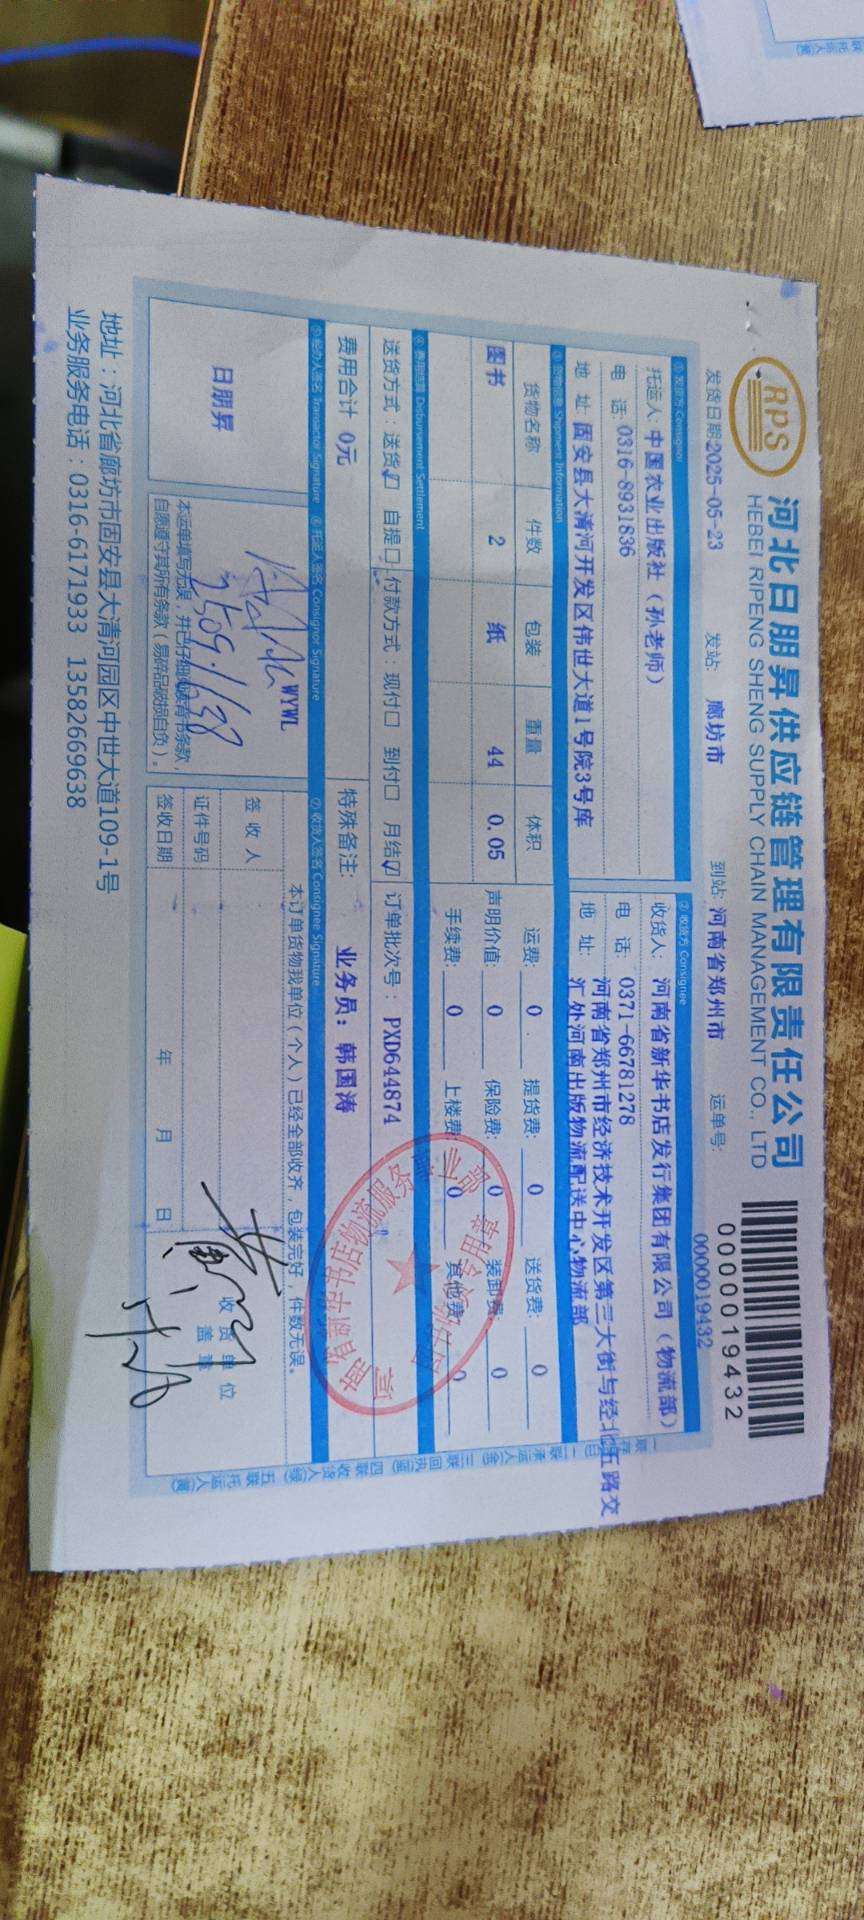 RPS
河北日朋昇供应链管理有限责任公司
HEBEI RIPENG SHENG SUPPLY CHAIN MANAGEMENT CO., LTD
0000019432
发货日期:2025-05-23 发站: 廊坊市 到站: 河南省郑州市 运单号: 0000019432
① 发货方 Consignor
托运人: 中国农业出版社（孙老师）
电 话: 0316-8931836
地 址: 固安县大清河开发区伟世大道1号院3号库
② 收货方 Consignee
收货人: 河南省新华书店发行集团有限公司（物流部）
电 话: 0371-66781278
地 址: 河南省郑州市经济技术开发区第三大街与经北五路交
汇处河南出版物流配送中心物流部
③ 货物信息 Shipment Information
货物名称 件数 包装 重量 体积
图书 2 纸 44 0.05
运费: 0 提货费: 0 送货费: 0
声明价值: 0 保险费: 0 装卸费: 0
手续费: 0 上楼费: 0 其他费: 0
④ 费用结算 Disbursement Settlement
送货方式: 送货☑ 自提□ 付款方式: 现付□ 到付□ 月结☑ 订单批次号: PXD644874
费用合计 0元 特殊备注: 业务员: 韩国涛
⑤ 经办人签名 Transactor Signature ⑥ 托运人签名 Consignor Signature ⑦ 收货人签名 Consignee Signature
日朋昇
WYWL
本运单填写无误，并已仔细阅读背书条款，
自愿遵守其所有条款（易碎品破损自负）。
本订单货物我单位（个人）已经全部收齐，包装完好，件数无误。
签 收 人
证件号码
签收日期 年 月 日
收货单位
盖章
地址：河北省廊坊市固安县大清河园区中世大道109-1号
业务服务电话：0316-6171933 13582669638